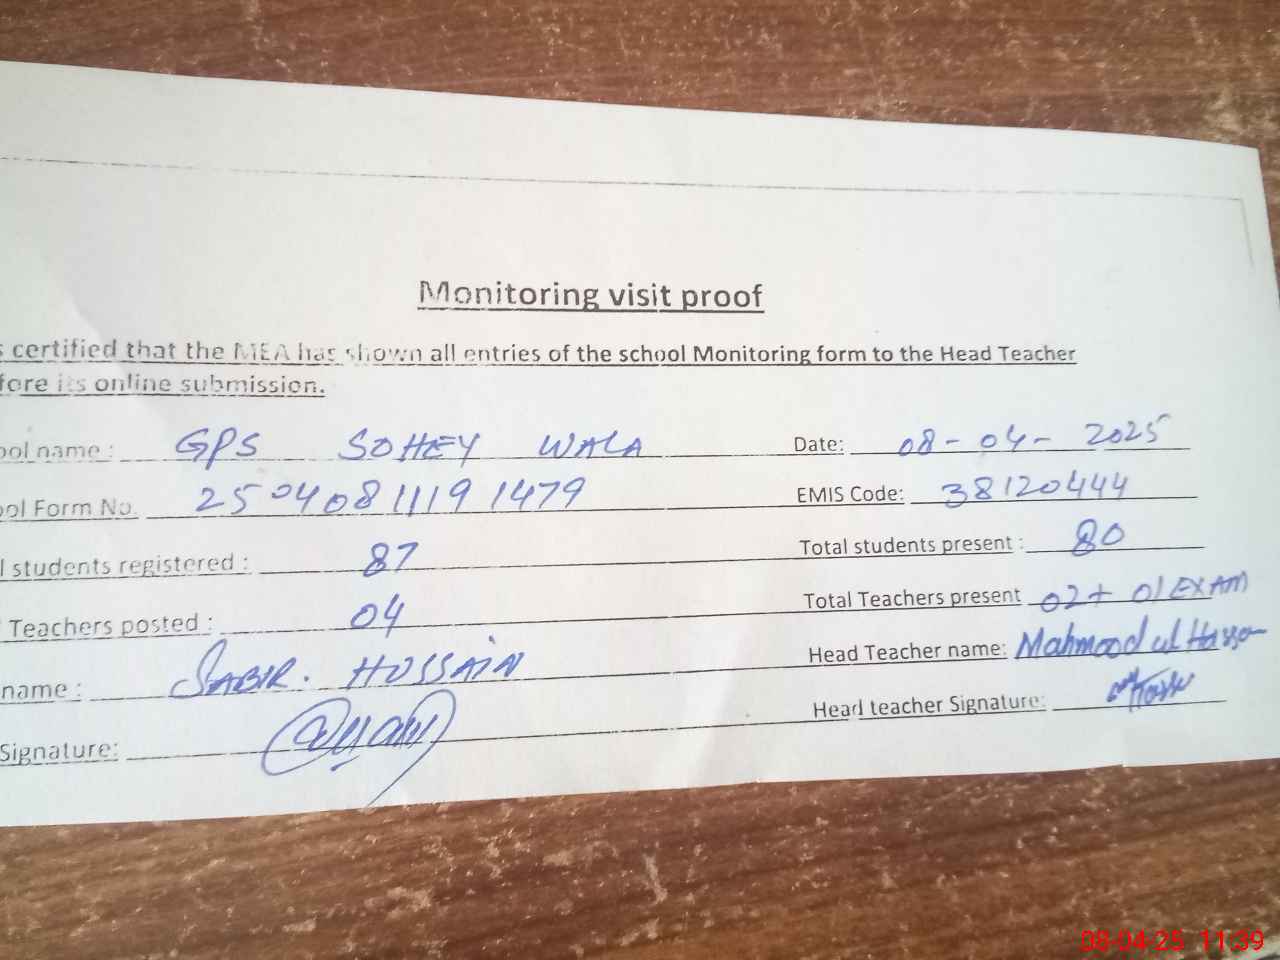 Monitoring visit proof
s certified that the MEA has shown all entries of the school Monitoring form to the Head Teacher
fore its online submission.
ool name : GPS SOHEY WALA Date: 08-04-2025
ool Form No. 2504081119 1479 EMIS Code: 38120444
l students registered : 87 Total students present : 80
Teachers posted : 04 Total Teachers present 02+ 01 EXAM
name : SABIR. HUSSAIN Head Teacher name: Mahmood ul Hassan
Signature: Head teacher Signature:
08-04-25 11:39